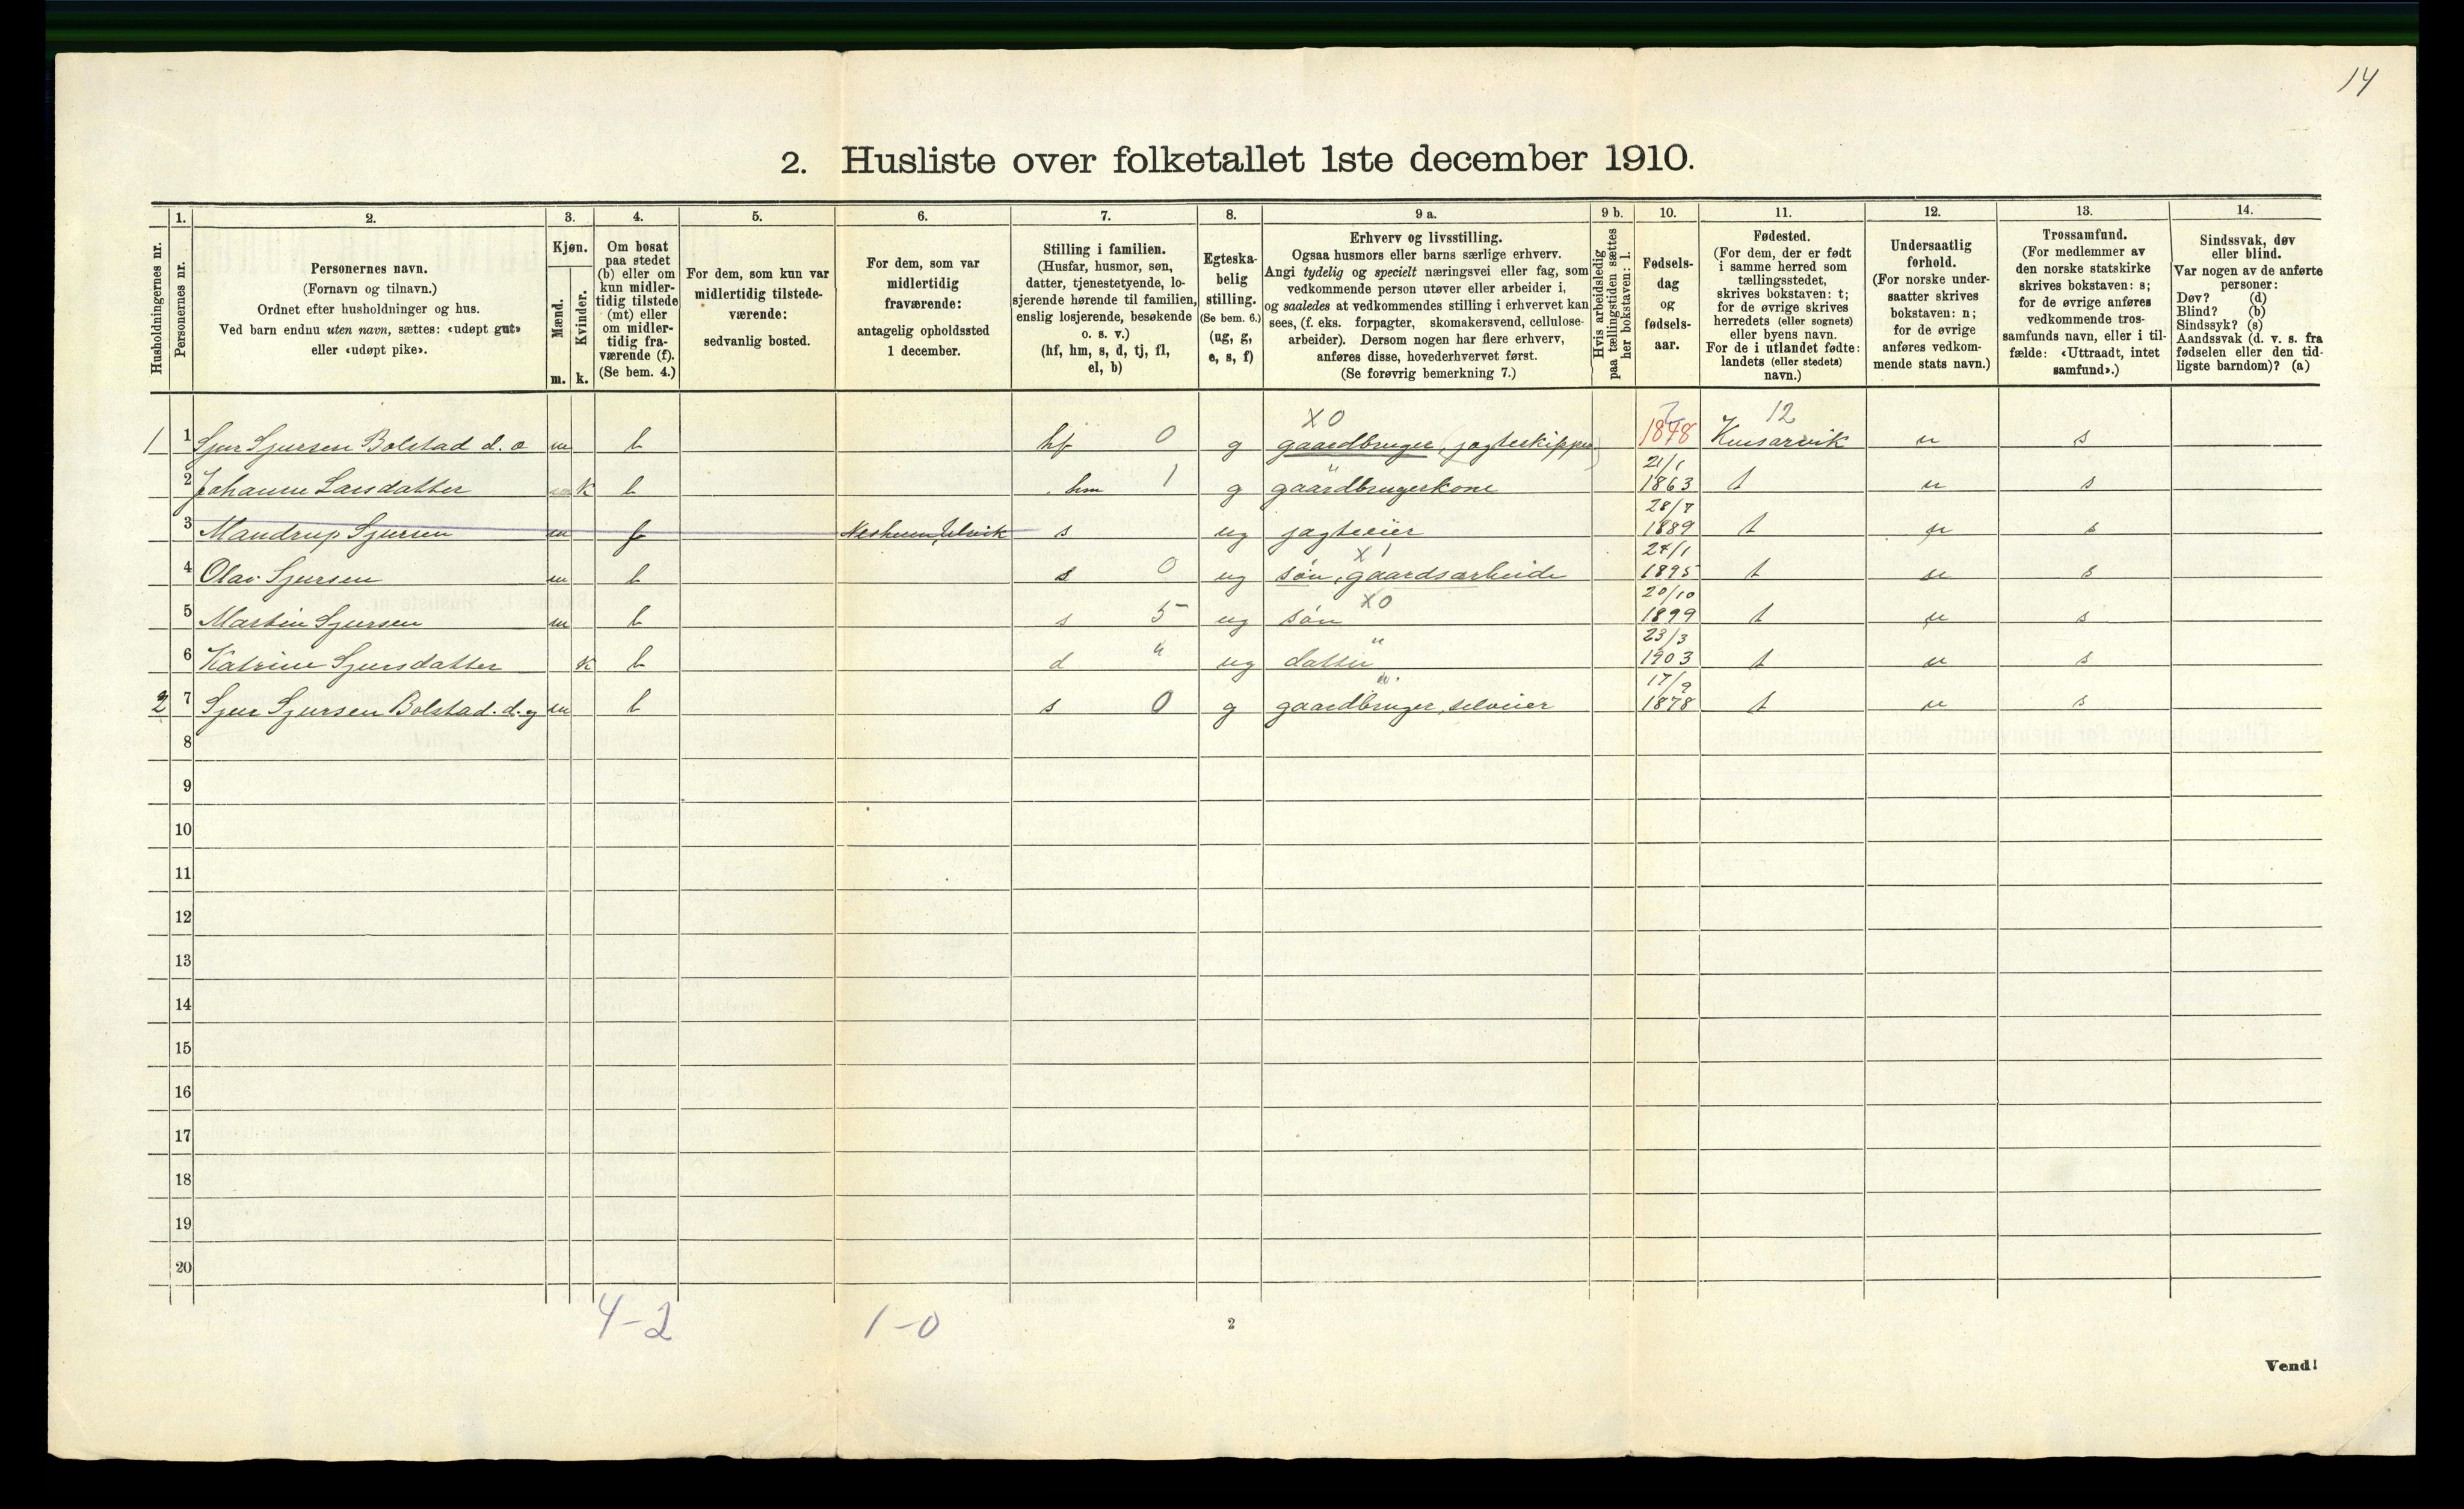 14
2. Husliste over folketallet 1ste december 1910.
Husholdningernes nr.
1.
Personernes nr.
2.
Personernes navn.
(Fornavn og tilnavn.)
Ordnet efter husholdninger og hus.
Ved barn endnu uten navn, sættes: «udøpt gut»
eller «udøpt pike».
3.
Kjøn.
Mænd.
Kvinder.
m. k.
4.
Om bosat
paa stedet
(b) eller om
kun midler-
tidig tilstede
(mt) eller
om midler-
tidig fra-
værende (f).
(Se bem. 4.)
5.
For dem, som kun var
midlertidig tilstede-
værende:
sedvanlig bosted.
6.
For dem, som var
midlertidig
fraværende:
antagelig opholdssted
1 december.
7.
Stilling i familien.
(Husfar, husmor, søn,
datter, tjenestetyende, lo-
sjerende hørende til familien,
enslig losjerende, besøkende
o. s. v.)
(hf, hm, s, d, tj, fl,
el, b)
8.
Egteska-
belig
stilling.
(Se bem. 6.)
(ug, g,
e, s, f)
9 a.
Erhverv og livsstilling.
Ogsaa husmors eller barns særlige erhverv.
Angi tydelig og specielt næringsvei eller fag, som
vedkommende person utøver eller arbeider i,
og saaledes at vedkommendes stilling i erhvervet kan
sees, (f. eks. forpagter, skomakersvend, cellulose-
arbeider). Dersom nogen har flere erhverv,
anføres disse, hovederhvervet først.
(Se forøvrig bemerkning 7.)
9 b.
Hvis arbeidsledig
paa tællingstiden sættes
her bokstaven: l.
10.
Fødsels-
dag
og
fødsels-
aar.
11.
Fødested.
(For dem, der er født
i samme herred som
tællingsstedet,
skrives bokstaven: t;
for de øvrige skrives
herredets (eller sognets)
eller byens navn.
For de i utlandet fødte:
landets (eller stedets)
navn.)
12.
Undersaatlig
forhold.
(For norske under-
saatter skrives
bokstaven: n;
for de øvrige
anføres vedkom-
mende stats navn.)
13.
Trossamfund.
(For medlemmer av
den norske statskirke
skrives bokstaven: s;
for de øvrige anføres
vedkommende tros-
samfunds navn, eller i til-
fælde: «Uttraadt, intet
samfund».)
14.
Sindssvak, døv
eller blind.
Var nogen av de anførte
personer:
Døv? (d)
Blind? (b)
Sindssyk? (s)
Aandssvak (d. v. s. fra
fødselen eller den tid-
ligste barndom)? (a)
X0 12
1 1 Sjur Sjursen Bolstad d. æ m b hf 0 g gaardbruger, jagteskipper 1848 Kinsarvik n s
" 21/1
2 Johanne Larsdatter k b hm 1 g gaardbrugerkone 1863 t n s
28/7
3 Mandrup Sjursen m f Nesheim, Ulvik s ug jagteeier 1889 t n s
X 1 24/1
4 Olav Sjursen m b s 0 ug søn, gaardsarbeide 1895 t n s
X0 20/10
5 Martin Sjursen m b s 5 ug søn 1899 t n s
" 23/3
6 Katrine Sjursdatter k b d " ug datter 1903 t n s
17/9
2 7 Sjur Sjursen Bolstad. d. y m b s 0 g gaardbruger, selveier 1878 t n s
8
9
10
11
12
13
14
15
16
17
18
19
20
4-2 1-0
2
Vend!